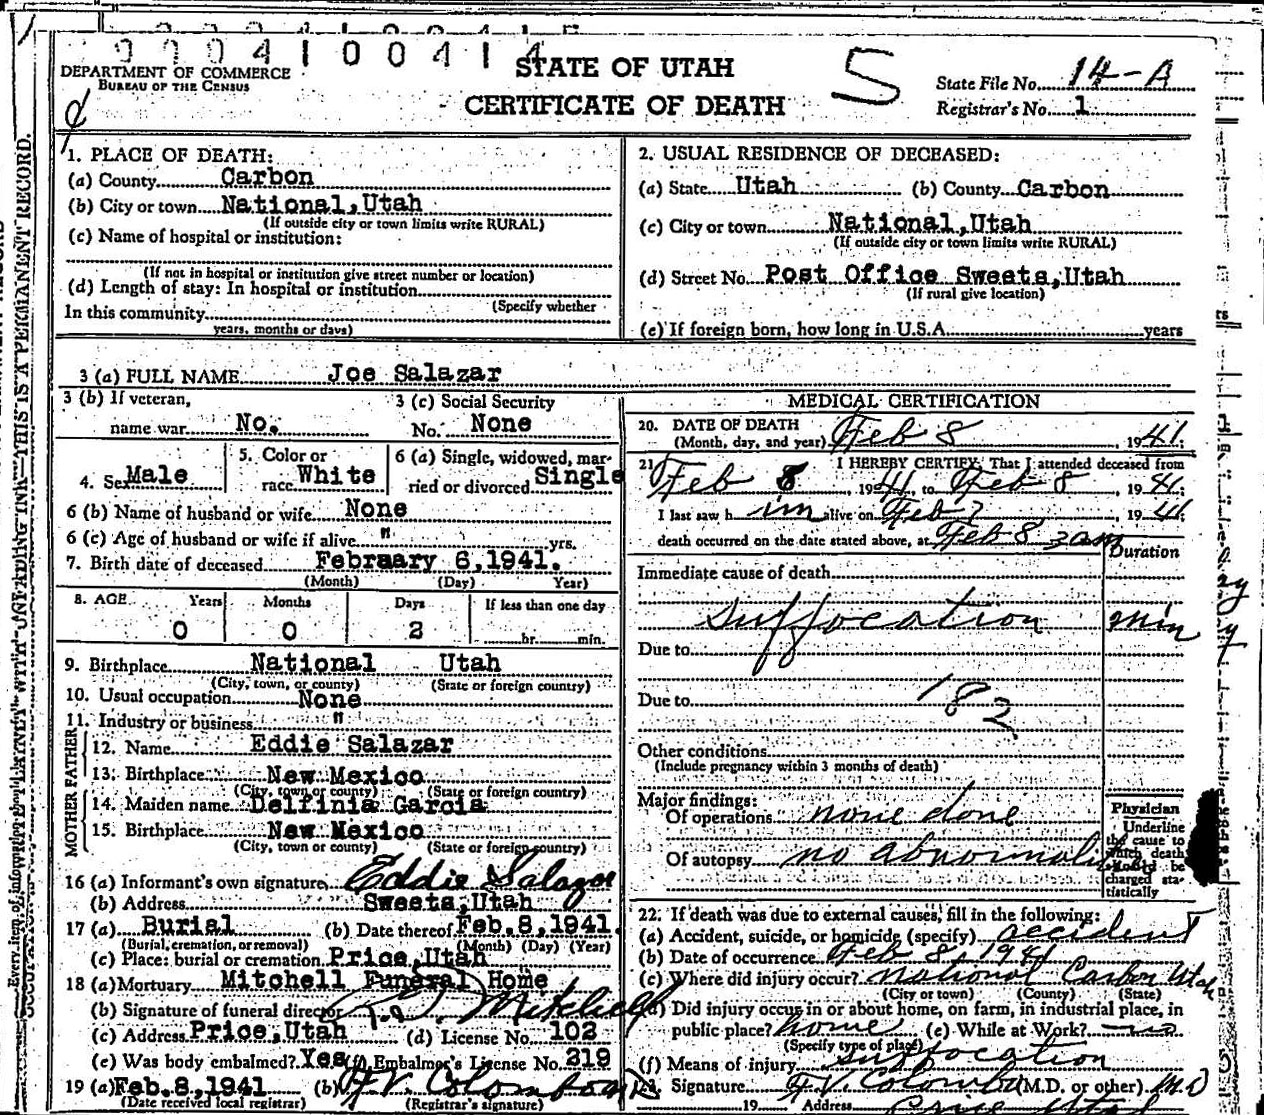 0 0 0 4 1 0 0 4 1 4
DEPARTMENT OF COMMERCE
BUREAU OF THE CENSUS
STATE OF UTAH
CERTIFICATE OF DEATH
5
State File No. 14-A
Registrar's No. 1
1. PLACE OF DEATH:
(a) County Carbon
(b) City or town National, Utah
(If outside city or town limits write RURAL)
(c) Name of hospital or institution:
(If not in hospital or institution give street number or location)
(d) Length of stay: In hospital or institution
(Specify whether
In this community
years, months or days)
2. USUAL RESIDENCE OF DECEASED:
(a) State Utah (b) County Carbon
(c) City or town National, Utah
(If outside city or town limits write RURAL)
(d) Street No. Post Office Sweets, Utah
(If rural give location)
(e) If foreign born, how long in U.S.A. years
3 (a) FULL NAME Joe Salazar
3 (b) If veteran,
name war No.
3 (c) Social Security
No. None
4. Sex Male
5. Color or
race White
6 (a) Single, widowed, mar-
ried or divorced Single
6 (b) Name of husband or wife None
6 (c) Age of husband or wife if alive " yrs.
7. Birth date of deceased Febraary 6, 1941.
(Month) (Day) Year)
8. AGE Years Months Days If less than one day
0 0 2 hr. min.
9. Birthplace National Utah
(City, town, or county) (State or foreign country)
10. Usual occupation None
11. Industry or business "
FATHER
12. Name Eddie Salazar
13. Birthplace New Mexico
(City, town or county) (State or foreign country)
MOTHER
14. Maiden name Delfinia Garcia
15. Birthplace New Mexico
(City, town or county) (State or foreign country)
16 (a) Informant's own signature Eddie Salazar
(b) Address Sweets, Utah
17 (a) Burial (b) Date thereof Feb. 8, 1941.
(Burial, cremation, or removal) (Month) (Day) (Year)
(c) Place: burial or cremation Price, Utah
18 (a) Mortuary Mitchell Funeral Home
(b) Signature of funeral director Mitchell
(c) Address Price, Utah (d) License No. 102
(e) Was body embalmed? Yes (f) Embalmer's License No. 219
19 (a) Feb. 8, 1941 (b) F.V. Colombo M.D.
(Date received local registrar) (Registrar's signature)
MEDICAL CERTIFICATION
20. DATE OF DEATH
(Month, day, and year) Feb 8, 1941;
21. I HEREBY CERTIFY, That I attended deceased from
Feb 8, 1941, to Feb 8 1941;
I last saw him alive on Feb 7 1941;
death occurred on the date stated above, at Feb 8 3 am
Duration
Immediate cause of death
suffocation min
Due to
Due to 182
Other conditions
(Include pregnancy within 3 months of death)
Major findings:
Of operations none done
Of autopsy no
Physician
Underline
the cause to
which death
should be
charged sta-
tistically
22. If death was due to external causes, fill in the following:
(a) Accident, suicide, or homicide (specify) accident
(b) Date of occurrence Feb 8 1941
(c) Where did injury occur? National Carbon Utah
(City or town) (County) (State)
(d) Did injury occur in or about home, on farm, in industrial place, in
public place? home (e) While at Work? no
(Specify type of place)
(f) Means of injury suffocation
23. Signature F.V. Colombo (M.D. or other) MD
19 Address Price Utah